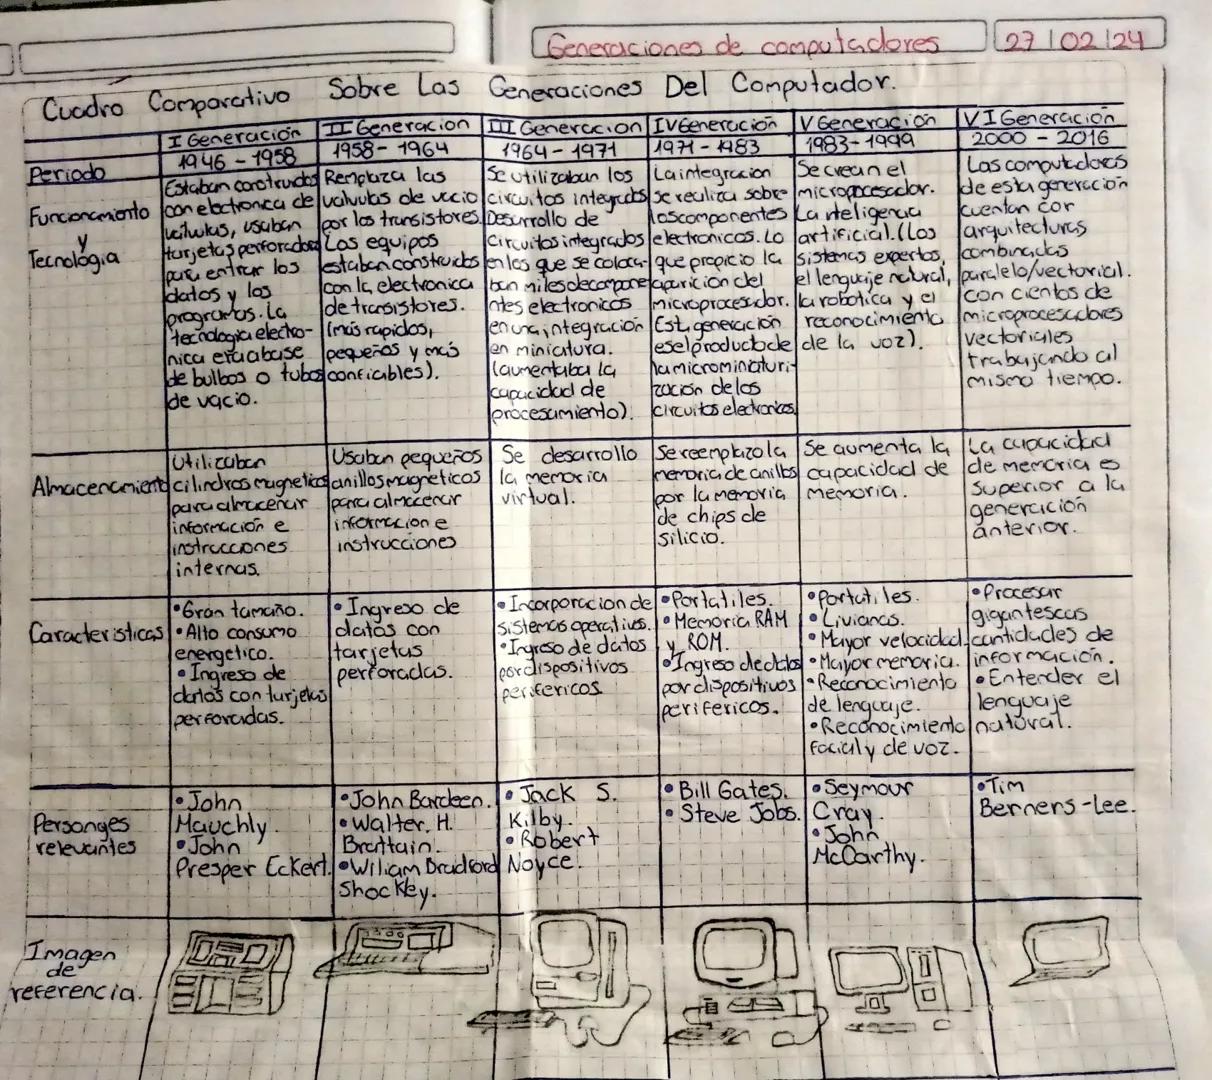 Generaciones de computadores
27 | 02 | 24
Cuadro Comparativo Sobre Las Generaciones Del Computador.
I Generación
II Generacion
III Generacion
IV Generación
V Generación
VI Generación
Periodo
1946 - 1958
1958 - 1964
1964 - 1971
1971 - 1983
1983 - 1999
2000 - 2016
Funcionamiento
y
Tecnologia
Estaban construidos
con electronica de
valvulas, usaban
tarjetas perforadas
para entrar los
datos y los
programas. La
tecnologia electro-
nica era a base
de bulbos o tubos
de vacio.
Remplaza las
valvulas de vacio
por los transistores.
Los equipos
estaban construidos
con la electronica
de transistores.
(más rapidos,
pequeños y más
confiables).
Se utilizaban los
circuitos integrados
Desarrollo de
circuitos integrados
en los que se coloca-
ban miles de compone
ntes electronicos
en una integración
en miniatura.
(aumentaba la
capacidad de
procesamiento).
La integracion
se realiza sobre
los componentes
electronicos. Lo
que propicio la
aparicion del
microprocesador.
Esta generación
es el producto de
la microminiaturi-
zación de los
circuitos electronicos
Se crean el
microprocesador.
La inteligencia
artificial. (Los
sistemas expertos,
el lenguaje natural,
la robotica y el
reconocimiento
de la voz).
Las computadoras
de esta generación
cuentan con
arquitecturas
combinadas
paralelo/vectorial.
con cientos de
microprocesadores
vectoriales
trabajando al
mismo tiempo.
Almacenamiento
Utilizaban
cilindros magneticos
para almacenar
información e
instrucciones
internas.
Usaban pequeños
anillos magneticos
para almacenar
informacion e
instrucciones
Se desarrollo
la memoria
virtual.
Se reemplaza la
memoria de anillos
por la memoria
de chips de
silicio.
Se aumenta la
capacidad de
memoria.
La capacidad
de memoria es
superior a la
generación
anterior.
Caracteristicas
• Gran tamaño.
• Alto consumo
energetico.
• Ingreso de
datos con tarjetas
perforadas.
• Ingreso de
datos con
tarjetas
perforadas.
• Incorporacion de
sistemas operativos.
• Ingreso de datos
por dispositivos
perifericos
• Portatiles.
• Memoria RAM
y ROM.
• Ingreso de datos
por dispositivos
perifericos.
• Portatiles.
• Livianos.
• Mayor velocidad.
• Mayor memoria.
• Reconocimiento
de lenguaje.
• Reconocimiento
facial y de voz.
• Procesar
gigantescas
cantidades de
información.
• Entender el
lenguaje
natural.
Personajes
relevantes
• John
Mauchly.
• John
Presper Eckert.
• John Bardeen.
• Walter. H.
Brattain.
• Wiliam Bradford
Shockley.
• Jack S.
Kilby.
• Robert
Noyce.
• Bill Gates.
• Steve Jobs.
• Seymour
Cray.
• John
McCarthy.
• Tim
Berners-Lee.
Imagen
de
referencia.